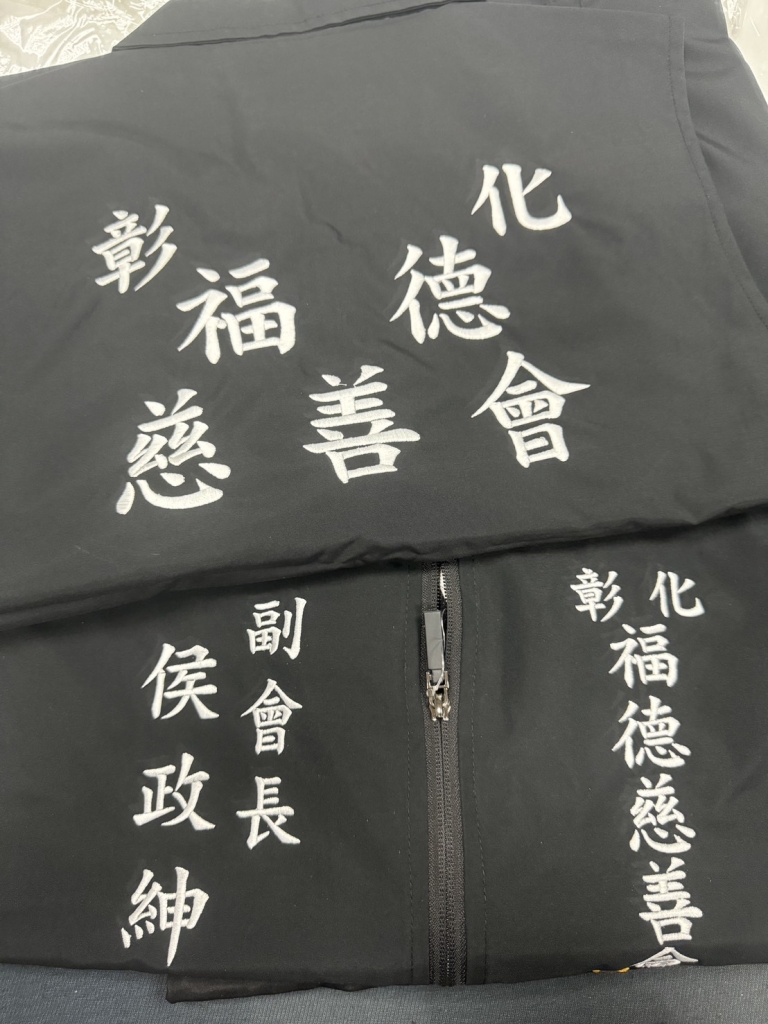 彰化
福德
慈善會
副會長
侯政紳
彰化
福德慈善會